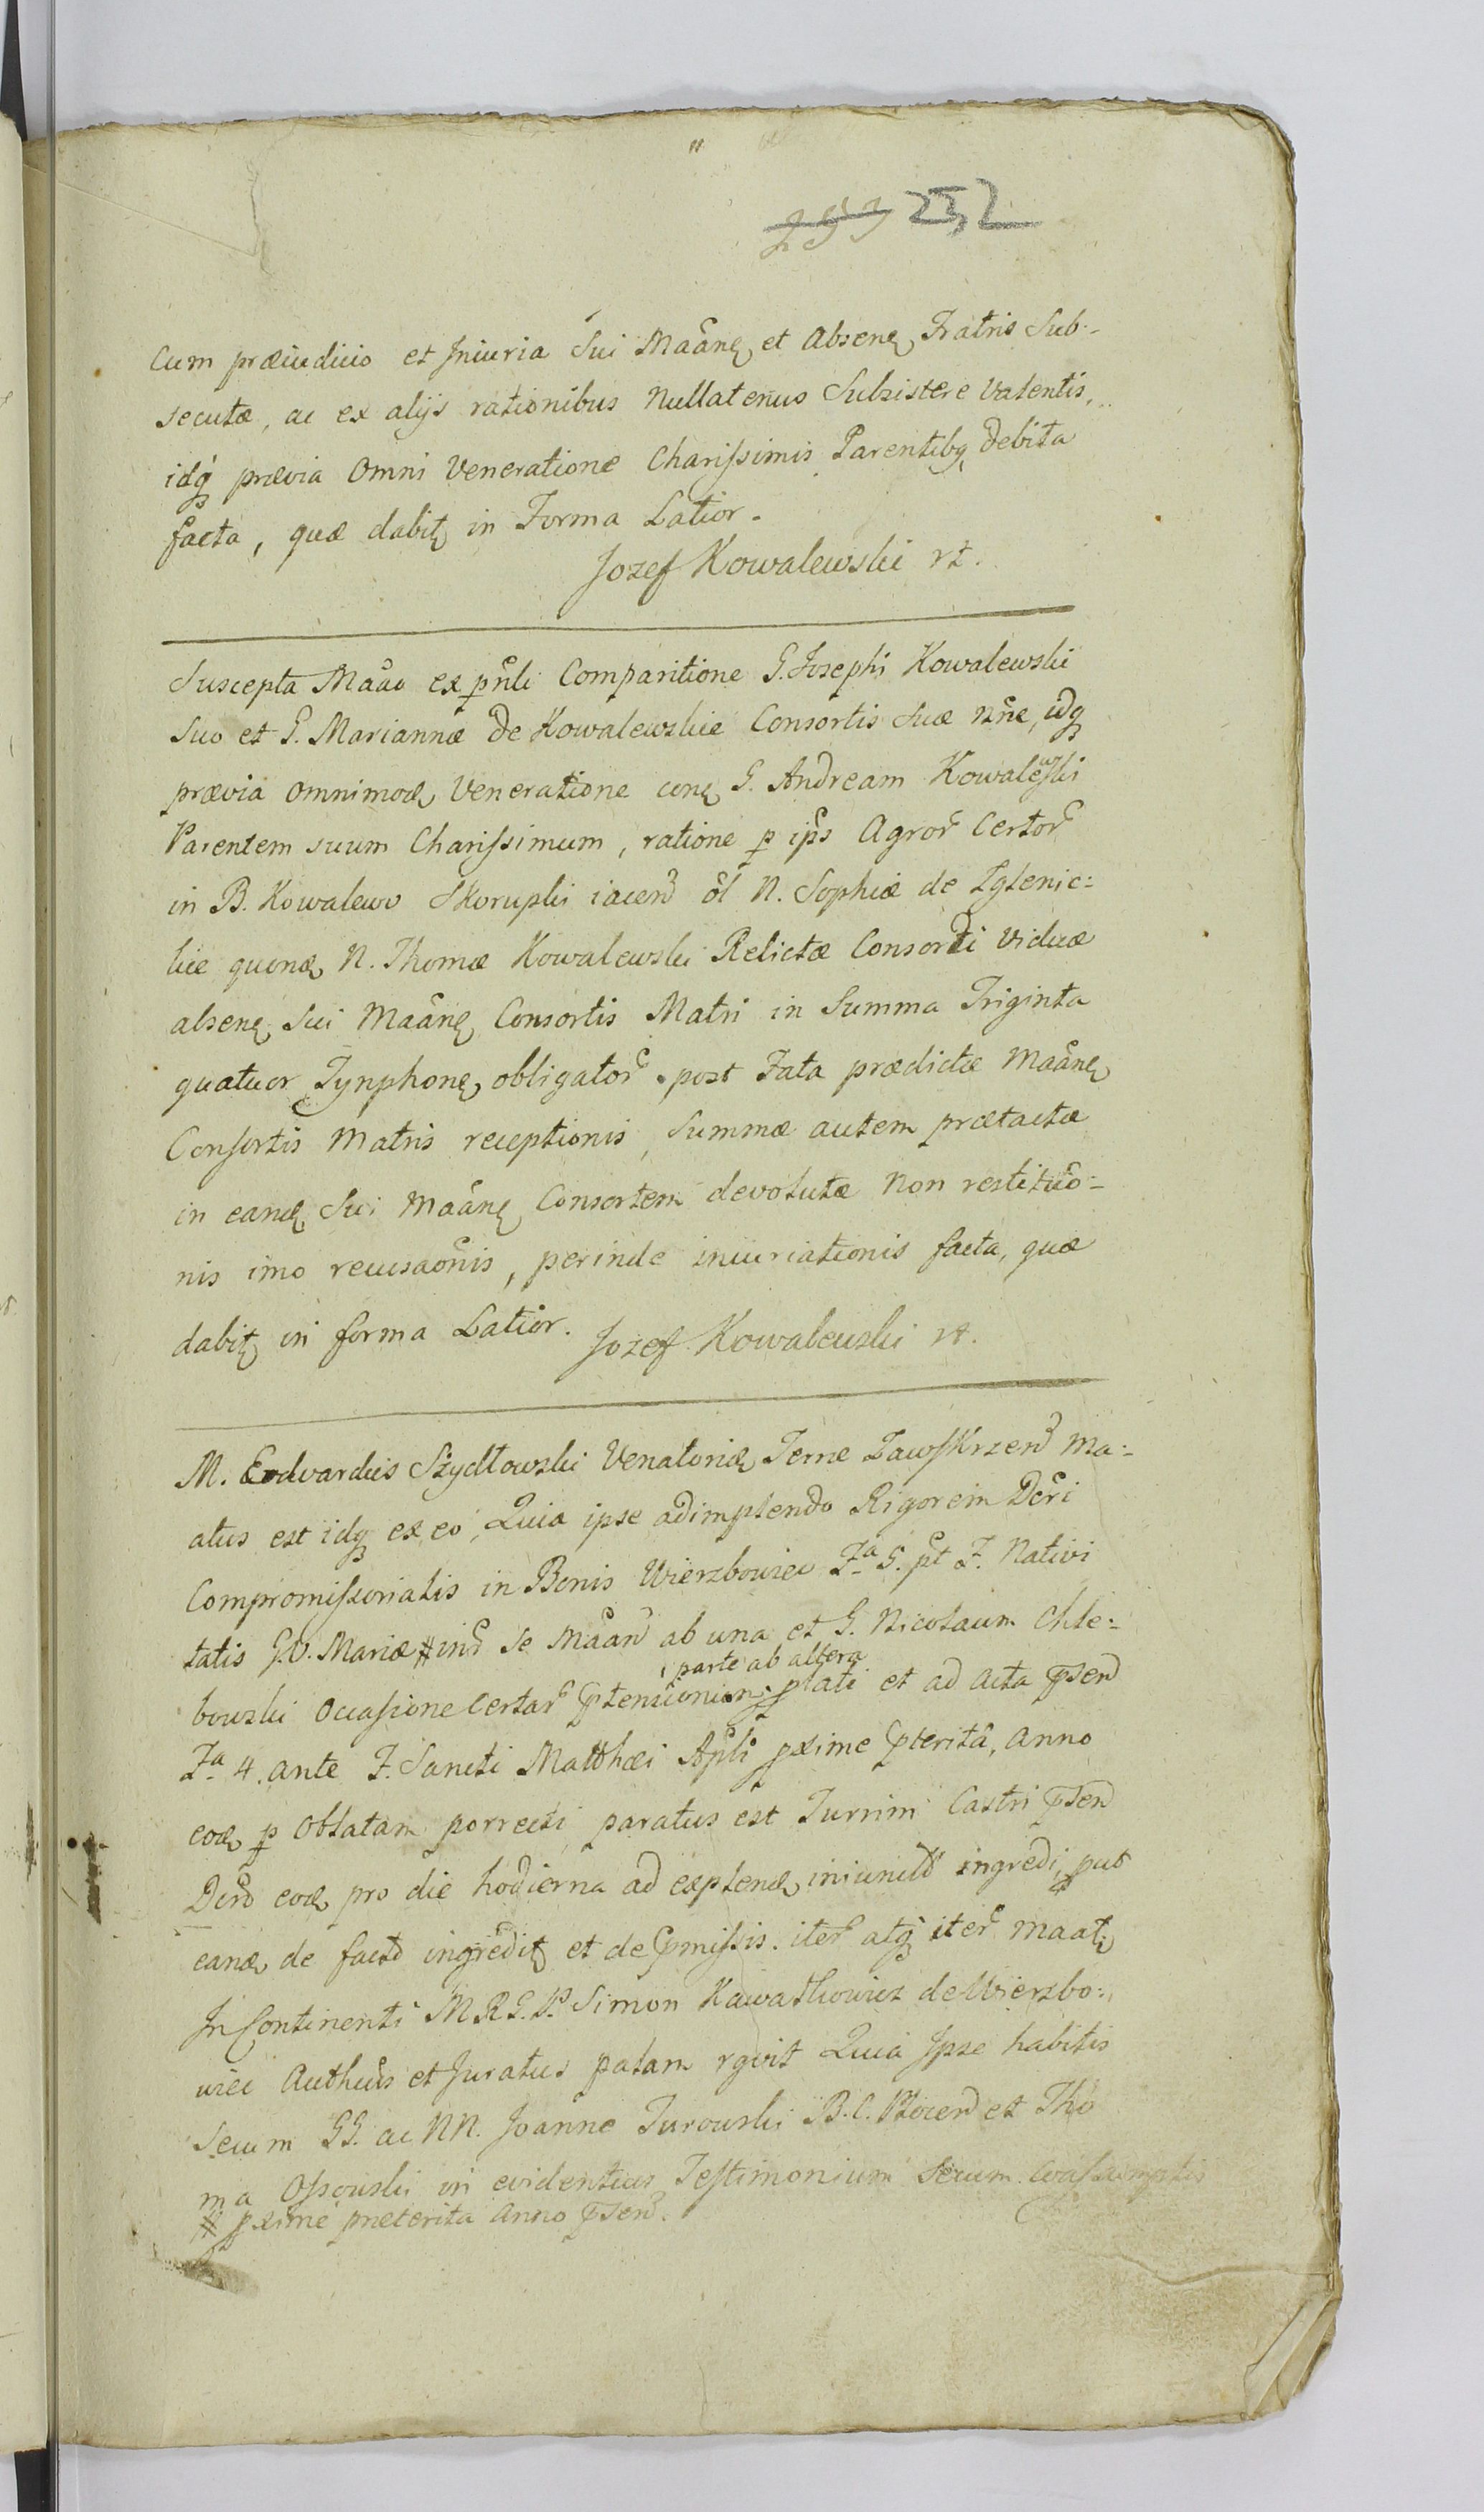 253 252
Cum præiudicio et Iniuria Sui Maãnę et Absenę Fratris Sub-
secutæ, ac ex alijs rationibus nullatenus Subsistere valentis,
idq prævia Omni Veneratione Charissimis Parentibq debita
facta, quæ dabitę in Forma Latior.
Jozef Kowalewski rt.
Suscepta Mãao ex pñli Comparitione G. Josephi Kowalewski
Suo et G. Mariannæ de Kowalewskie Consortis Suæ nñe, idq
prævia omnimodę Veneratione conę G. Andream Kowalewski
Parentem suum Charissimum, ratione p ips Agror Certor
in B. Kowalewo Skorupki iacend ol N. Sophiæ de Zglenic-
kie quonę N. Thomæ Kowalewski Relictæ Consorti Viduæ
absenę Sui Maãnę Consortis Matri in Summa Triginta
quatuor Tynphonę obligator post Fata prædictæ Maãnę
Consortis Matris receptionis, Summæ autem prætactæ
in eandę Sui Maãnę Consortem devolutæ non restituõ-
nis imo recusaõnis, perinde iniuriationis facta, quæ
dabitę in forma Latior. Jozef Kowalewski rt.
M. Edvardus Szydłowski Venatorię Terræ Zawskrzend Ma-
atus est idq ex eo, Quia ipse adimplendo Rigorem Dcri
Compromissorialis in Bonis Wierzbowiec Fa 5. pt F. Nativi
tatis B.V. Mariæ # ind se Maãn ab una et G. Nicolaum Chle-
bowski Occasione Certar ptensionum parte ab altera plati et ad Acta psend
Fa 4. ante F. Sancti Matthæi Apli pxime pterita, Anno
eodę p Oblatam porrecti paratus est Turrim Castri psend
Dcro eodę pro die hodierna ad explendę iniunct ingredi, put
eandę de facto ingreditę et de pmissis iter atq iter maatę
In Continenti M R G. Simon Kawałkowicz de Wierzbo-
wiec Authcus et Juratus palam rgvit Quia Ipse habitis
Secum GG. ac NN. Joanne Turowski B.C. Płocend et Tho
ma Ossowski in evidentius Testimonium Secum Coassumptis
# pxime præterita Anno psend.